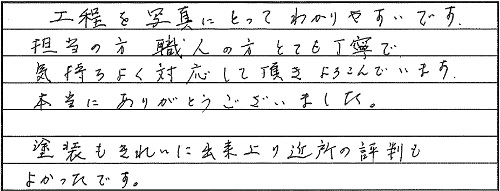 工程を写真にとってわかりやすいです.
担当の方 職人の方とても丁寧で
気持ちよく対応して頂きよろこんでいます.
本当にありがとうございました。
塗装もきれいに出来上り近所の評判も
よかったです。